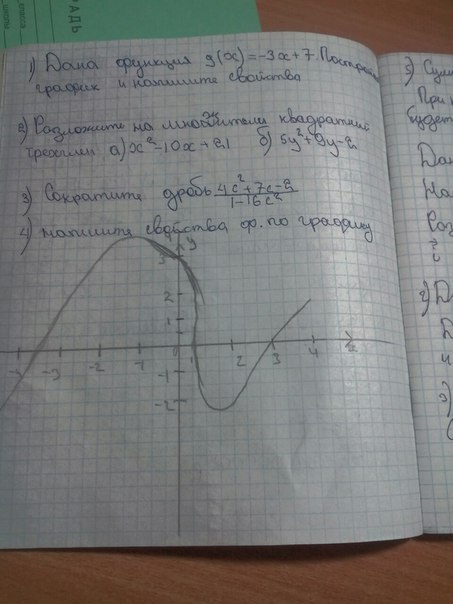 ТРАДЬ
класса
школы
1) Дана функция g(x) = -3x + 7. Постройте
график и напишите свойства
2) Разложите на множители квадратный
трехчлен а) x² - 10x + 21 б) 5y² + 9y - 2
3) Сократите дробь 4c² + 7c - 2 / 1 - 16c²
4) напишите свойства ф. по графику
y
3
2
1
-4 -3 -2 -1 0 1 2 3 4 x
-1
-2
При
будет
Дан
На
Раз
2) Д